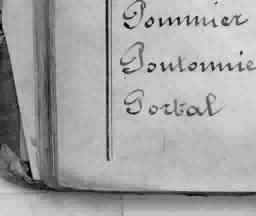 Pommier
Poutonnie
Portal